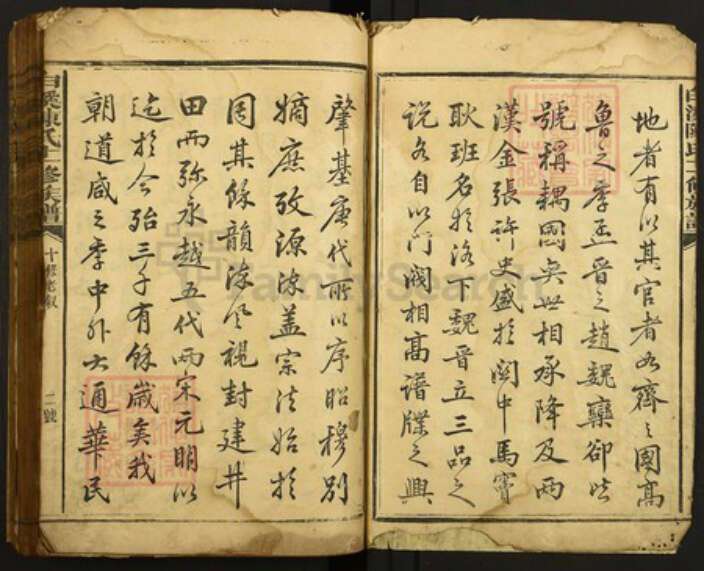 地者有以其官者如齊之國高
魯之季孟晉之趙魏欒卻皆
號稱耦國奕世相承降及兩
漢金張許史盛於關中馬竇
耿班名於洛下魏晉立三品之
說各自以門閥相高譜牒之興
肇基唐代所以序昭穆別
嫡庶攷源流蓋宗法始於
周其餘韻流風視封建井
田而弥永越五代兩宋元明以
迄於今殆三千有餘歲矣我
朝道咸之季中外大通華民
白溪陳氏二修族譜
二號
FamilySearch